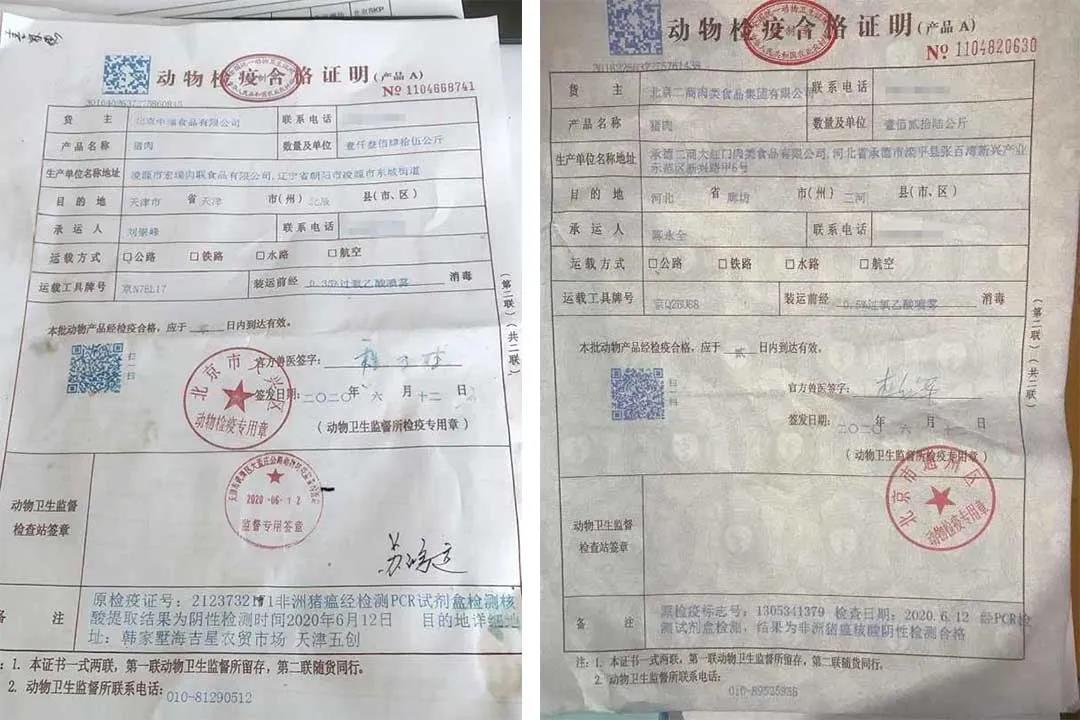 北京SKP
动物检疫合格证明(产品 A)
№ 1104668741
货 主 北京中瑞食品有限公司 联系电话
产品名称 猪肉 数量及单位 壹仟叁佰肆拾伍公斤
生产单位名称地址 凌源市宏瑞肉联食品有限公司,辽宁省朝阳市凌源市东城街道
目的地 天津市 省 天津 市(州) 北辰 县(市、区)
承运人 联系电话
运载方式 □公路 □铁路 □水路 □航空
运载工具牌号 京N78L17 装运前经 0.35%过氧乙酸喷雾 消毒
本批动物产品经检疫合格,应于 日内到达有效。
扫一扫
官方兽医签字:
签发日期:二〇二〇年 六 月 十二 日
(动物卫生监督所检疫专用章)
动物检疫专用章
(第二联)(共二联)
动物卫生监督检查站签章
2020-06-12
监督专用签章
备 注 原检疫证号:2123732171非洲猪瘟经检测PCR试剂盒检测核
酸提取结果为阴性检测时间2020年6月12日 目的地详细地
址:韩家墅海吉星农贸市场 天津五创
注:1. 本证书一式两联,第一联动物卫生监督所留存,第二联随货同行。
2. 动物卫生监督所联系电话:010-81290512
动物检疫合格证明(产品 A)
№ 1104820630
货 主 北京二商肉类食品集团有限公司 联系电话
产品名称 猪肉 数量及单位 壹佰贰拾陆公斤
生产单位名称地址 承德二商大红门肉类食品有限公司,河北省承德市滦平县张百湾新兴产业
示范区新兴路甲6号
目的地 河北 省 廊坊 市(州) 三河 县(市、区)
承运人 陈永全 联系电话
运载方式 □公路 □铁路 □水路 □航空
运载工具牌号 装运前经 0.5%过氧乙酸喷雾 消毒
本批动物产品经检疫合格,应于 贰 日内到达有效。
扫一扫
官方兽医签字:
签发日期:二〇二〇年 六 月 日
(动物卫生监督所检疫专用章)
北京市通州区
动物检疫专用章
(第二联)(共二联)
动物卫生监督检查站签章
备 注 原检疫标志号:1305341379 检查日期:2020.6.12 经PCR检
测试剂盒检测,结果为非洲猪瘟核酸阴性检测合格
注:1. 本证书一式两联,第一联动物卫生监督所留存,第二联随货同行。
2. 动物卫生监督所联系电话:
010-89525936